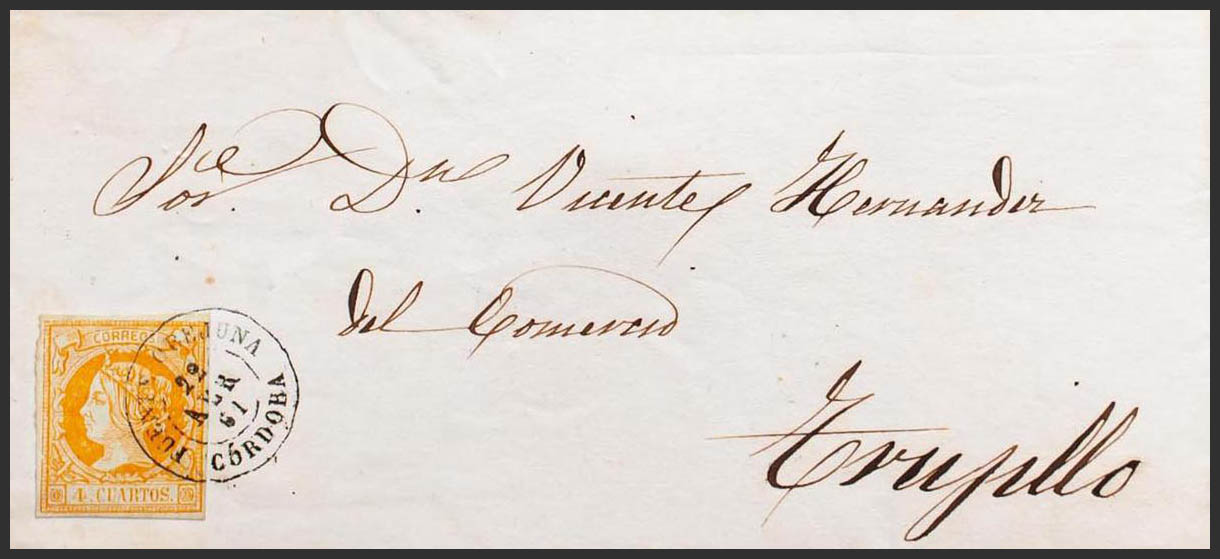 Sor. Dn. Vicente Hernandez
del Comercio
Trujillo
CORREOS
4. CUARTOS.
FUENTE OBEJUNA
22
ABR
61
CÓRDOBA